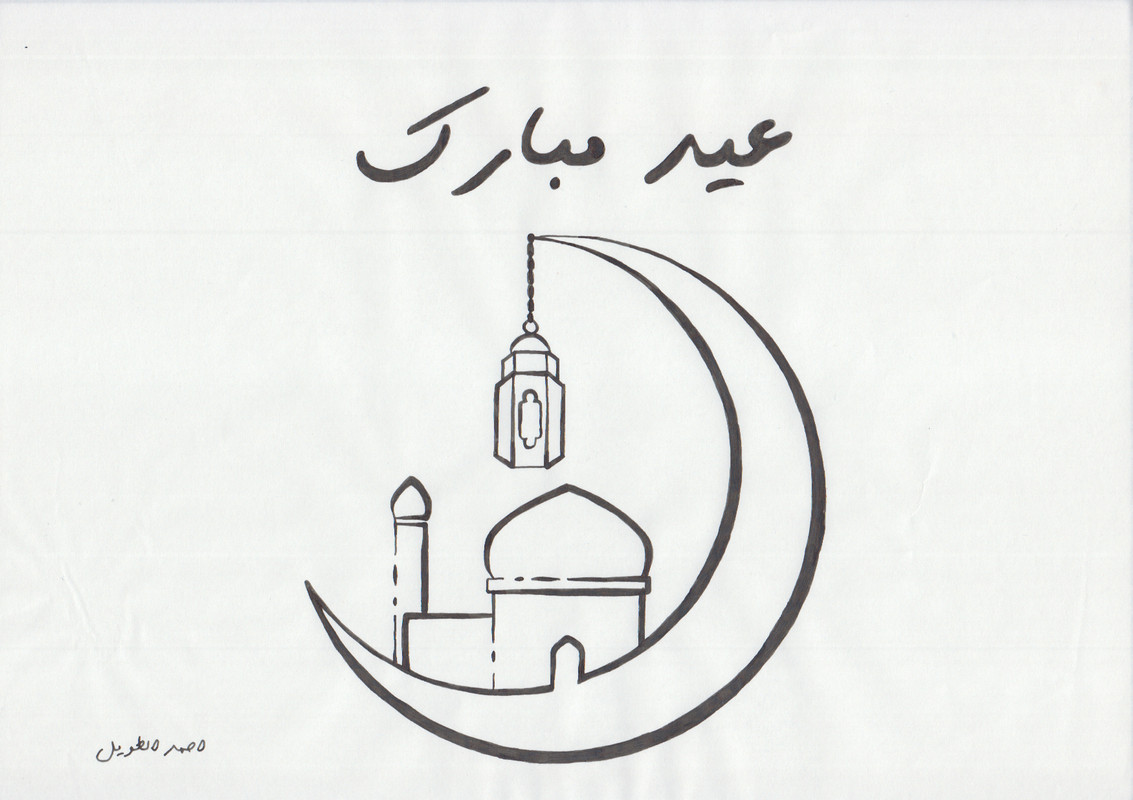 عيد مبارك
احمد الطويل